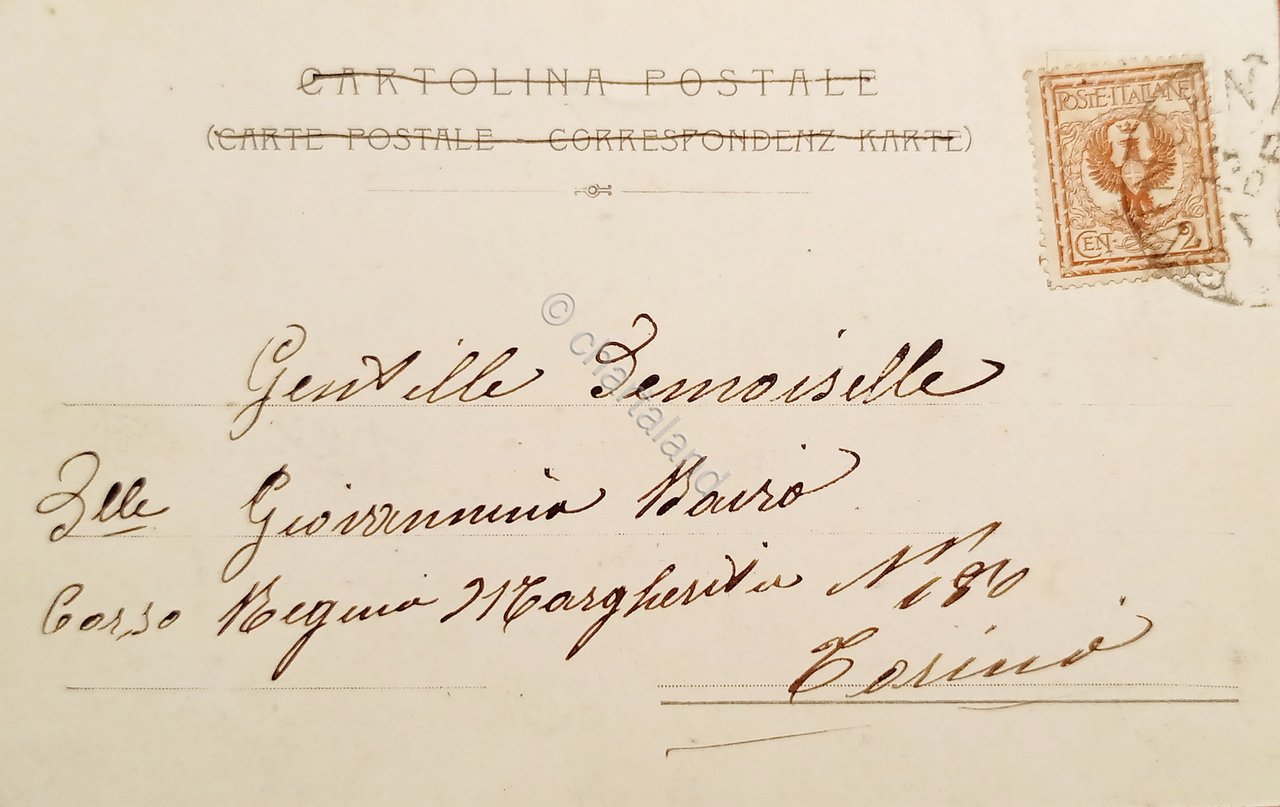 CARTOLINA POSTALE
(CARTE POSTALE - CORRESPONDENZ-KARTE)
POSTE·ITALIANE
CEN· 2
© chartaland
Gentille Demoiselle
Giovannina
Corso Regina Margherita N
Torino